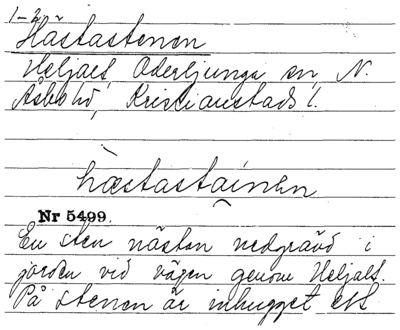 1-2
Hästastenen
Heljalt, Oderljunga sn N.
Åsbo hd, Kristianstads l.
hæstastainen
Nr 5499.
En sten nästan nedgrävd i
jorden vid vägen genom Heljalt.
På stenen är inhugget ett